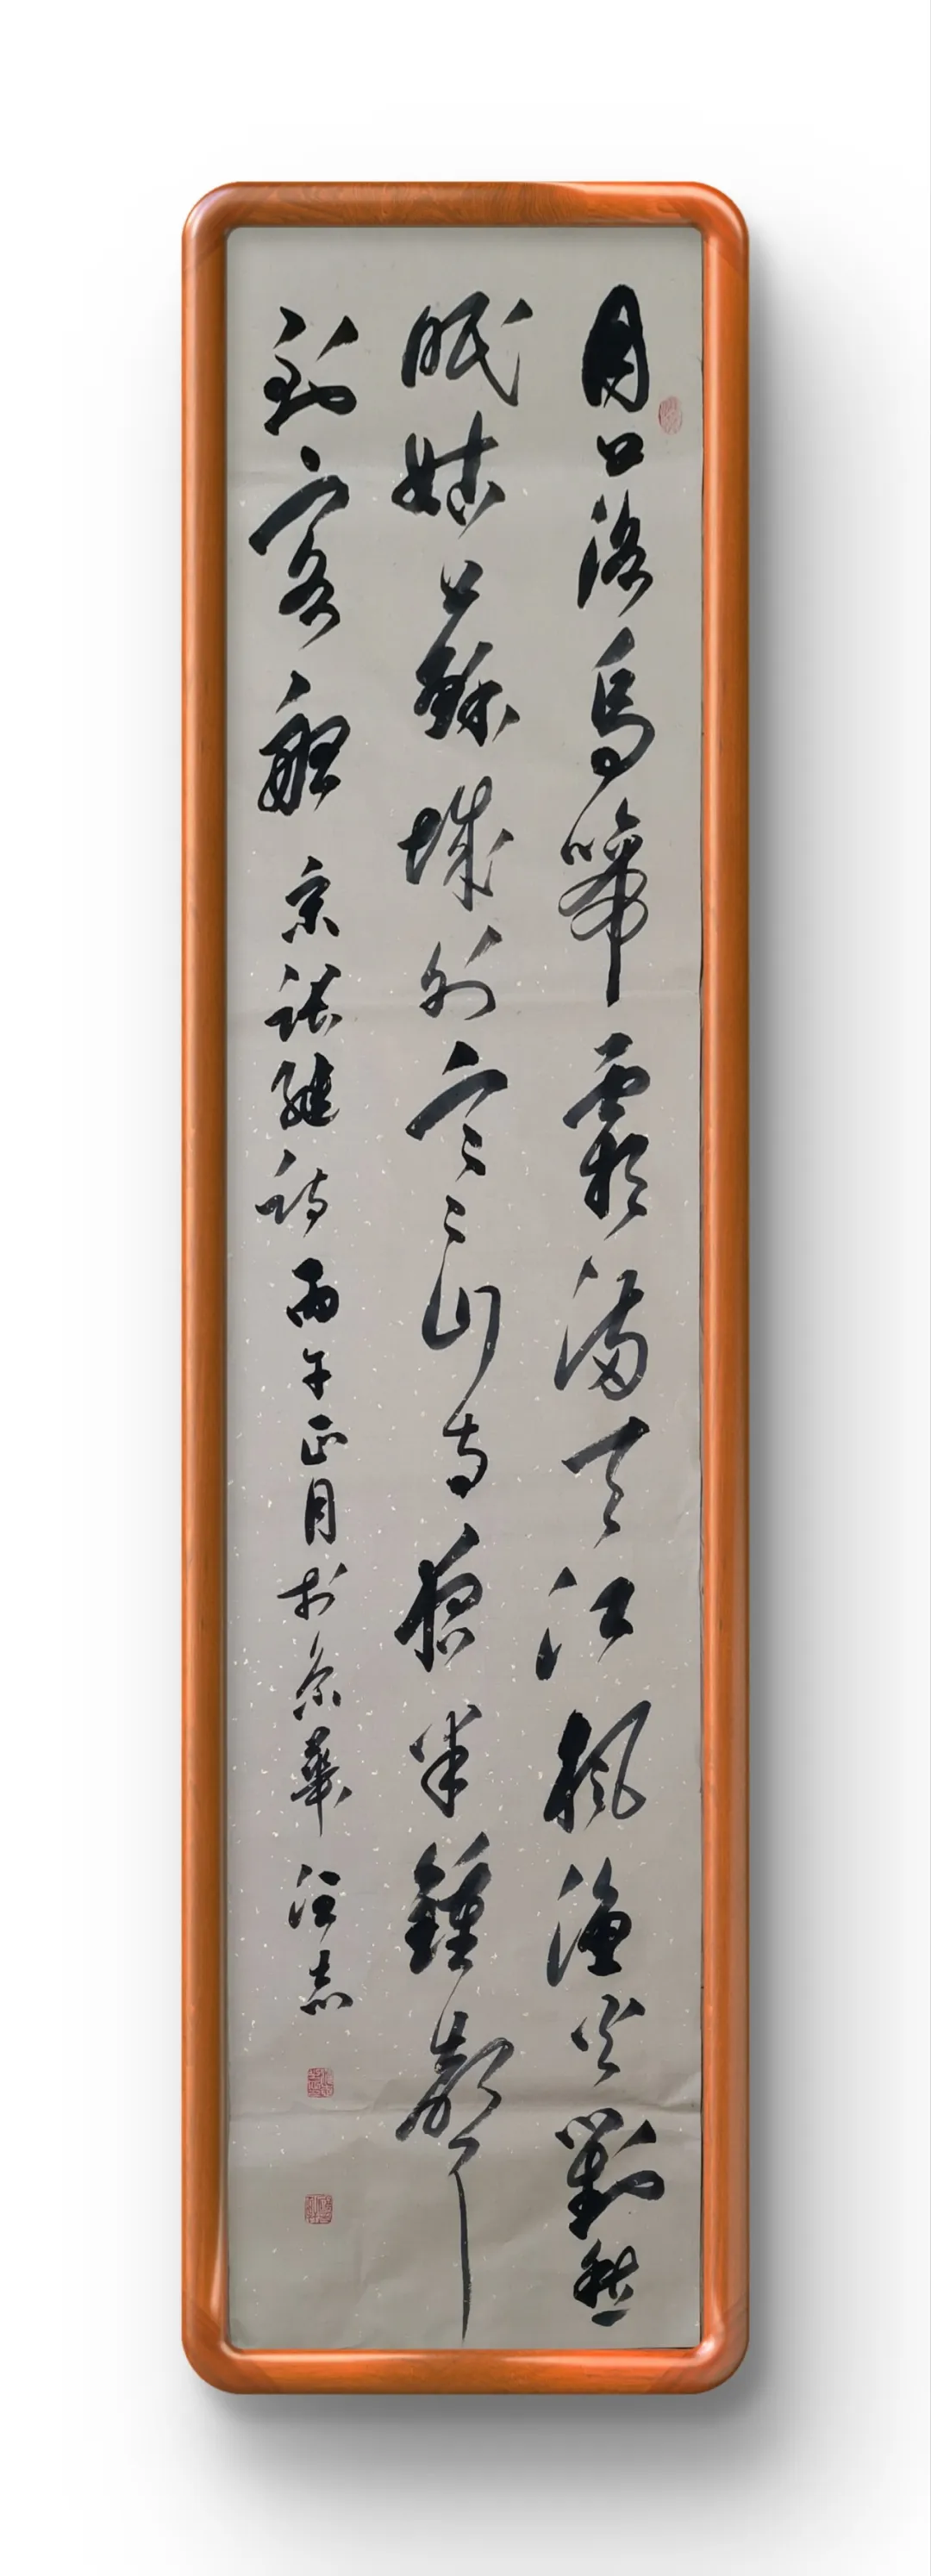 月落烏啼霜滿天江楓漁火對愁
眠姑蘇城外寒山寺夜半鍾聲
到客船 張繼詩 丙午正月於京華 汪志